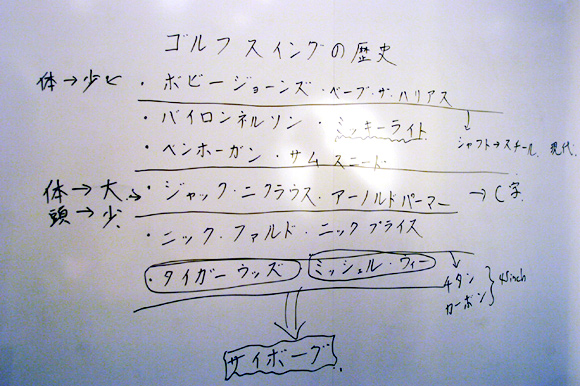 ゴルフスイングの歴史
体→少ヒ ・ボビージョーンズ・ベーブ・ザ・ハリアス
・バイロンネルソン・ミッキーライト
シャフト→スチール、現代。
・ベンホーガン・サムスニード
体→大→ ・ジャック・ニクラウス・アーノルドパーマー →C字
頭→少
・ニック・ファルド・ニックプライス
・タイガーウッズ ミッシェル・ウィー
チタン
カーボン
45inch
サイボーグ